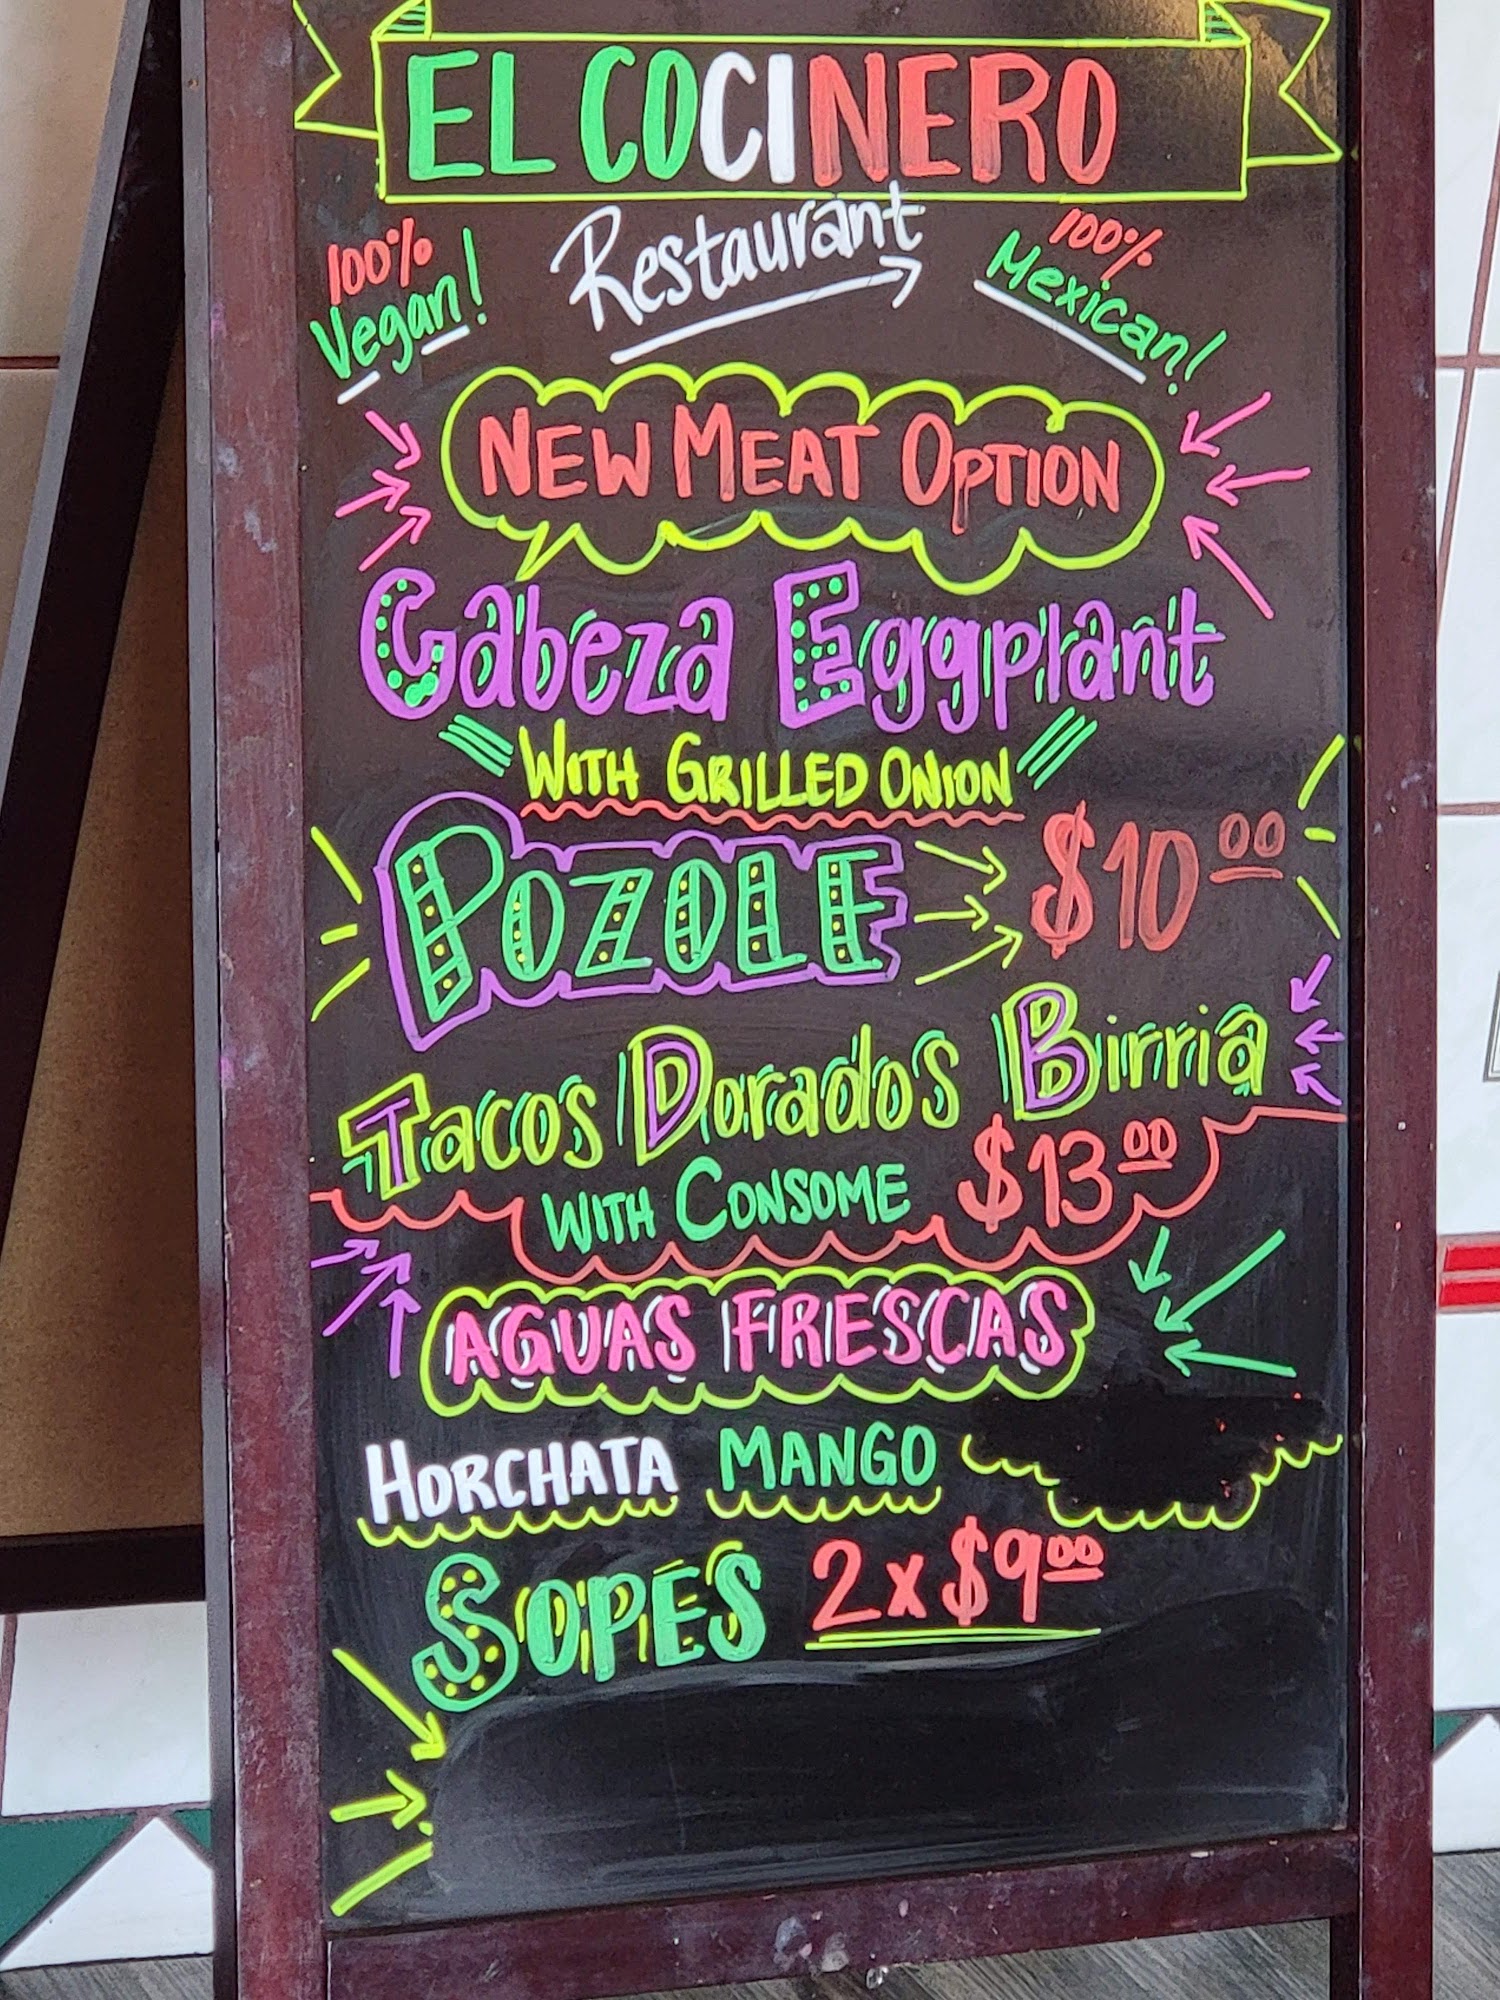 EL COCINERO
100% Vegan!
Restaurant
100% Mexican!
NEW MEAT OPTION
Cabeza Eggplant
WITH GRILLED ONION
POZOLE $10.00
Tacos Dorados Birria
WITH CONSOME $13.00
AGUAS FRESCAS
HORCHATA MANGO
SOPES 2x$9.00